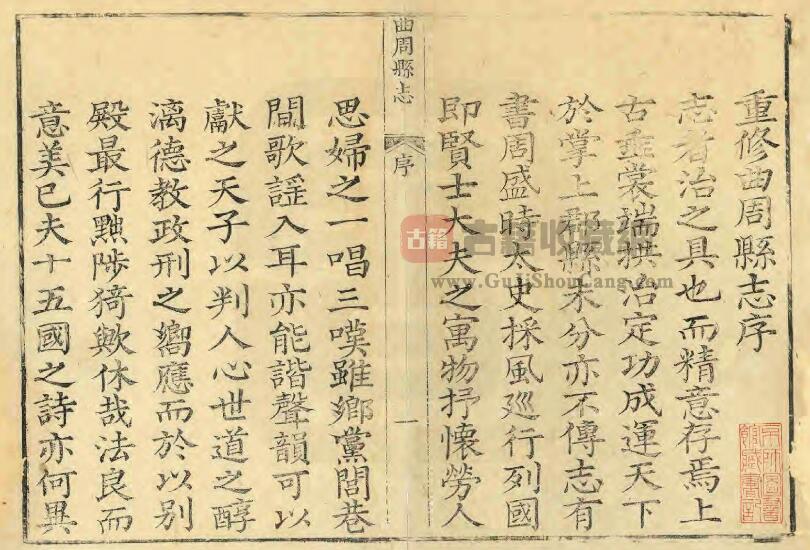 重修曲周縣志序
志者治之具也而精意存焉上
古垂裳端拱治定功成運天下
於掌上郡縣未分亦不傳志有
書周盛時太史採風廵行列國
即賢士大夫之寓物抒懷勞人
曲周縣志
序
一
思婦之一唱三嘆雖鄉黨閭巷
間歌謡入耳亦能諧聲韻可以
獻之天子以判人心世道之醇
漓德教政刑之嚮應而於以别
殿最行黜陟猗歟休哉法良而
意美已夫十五國之詩亦何異
古籍
古籍收藏
www.GujiShouCang.com